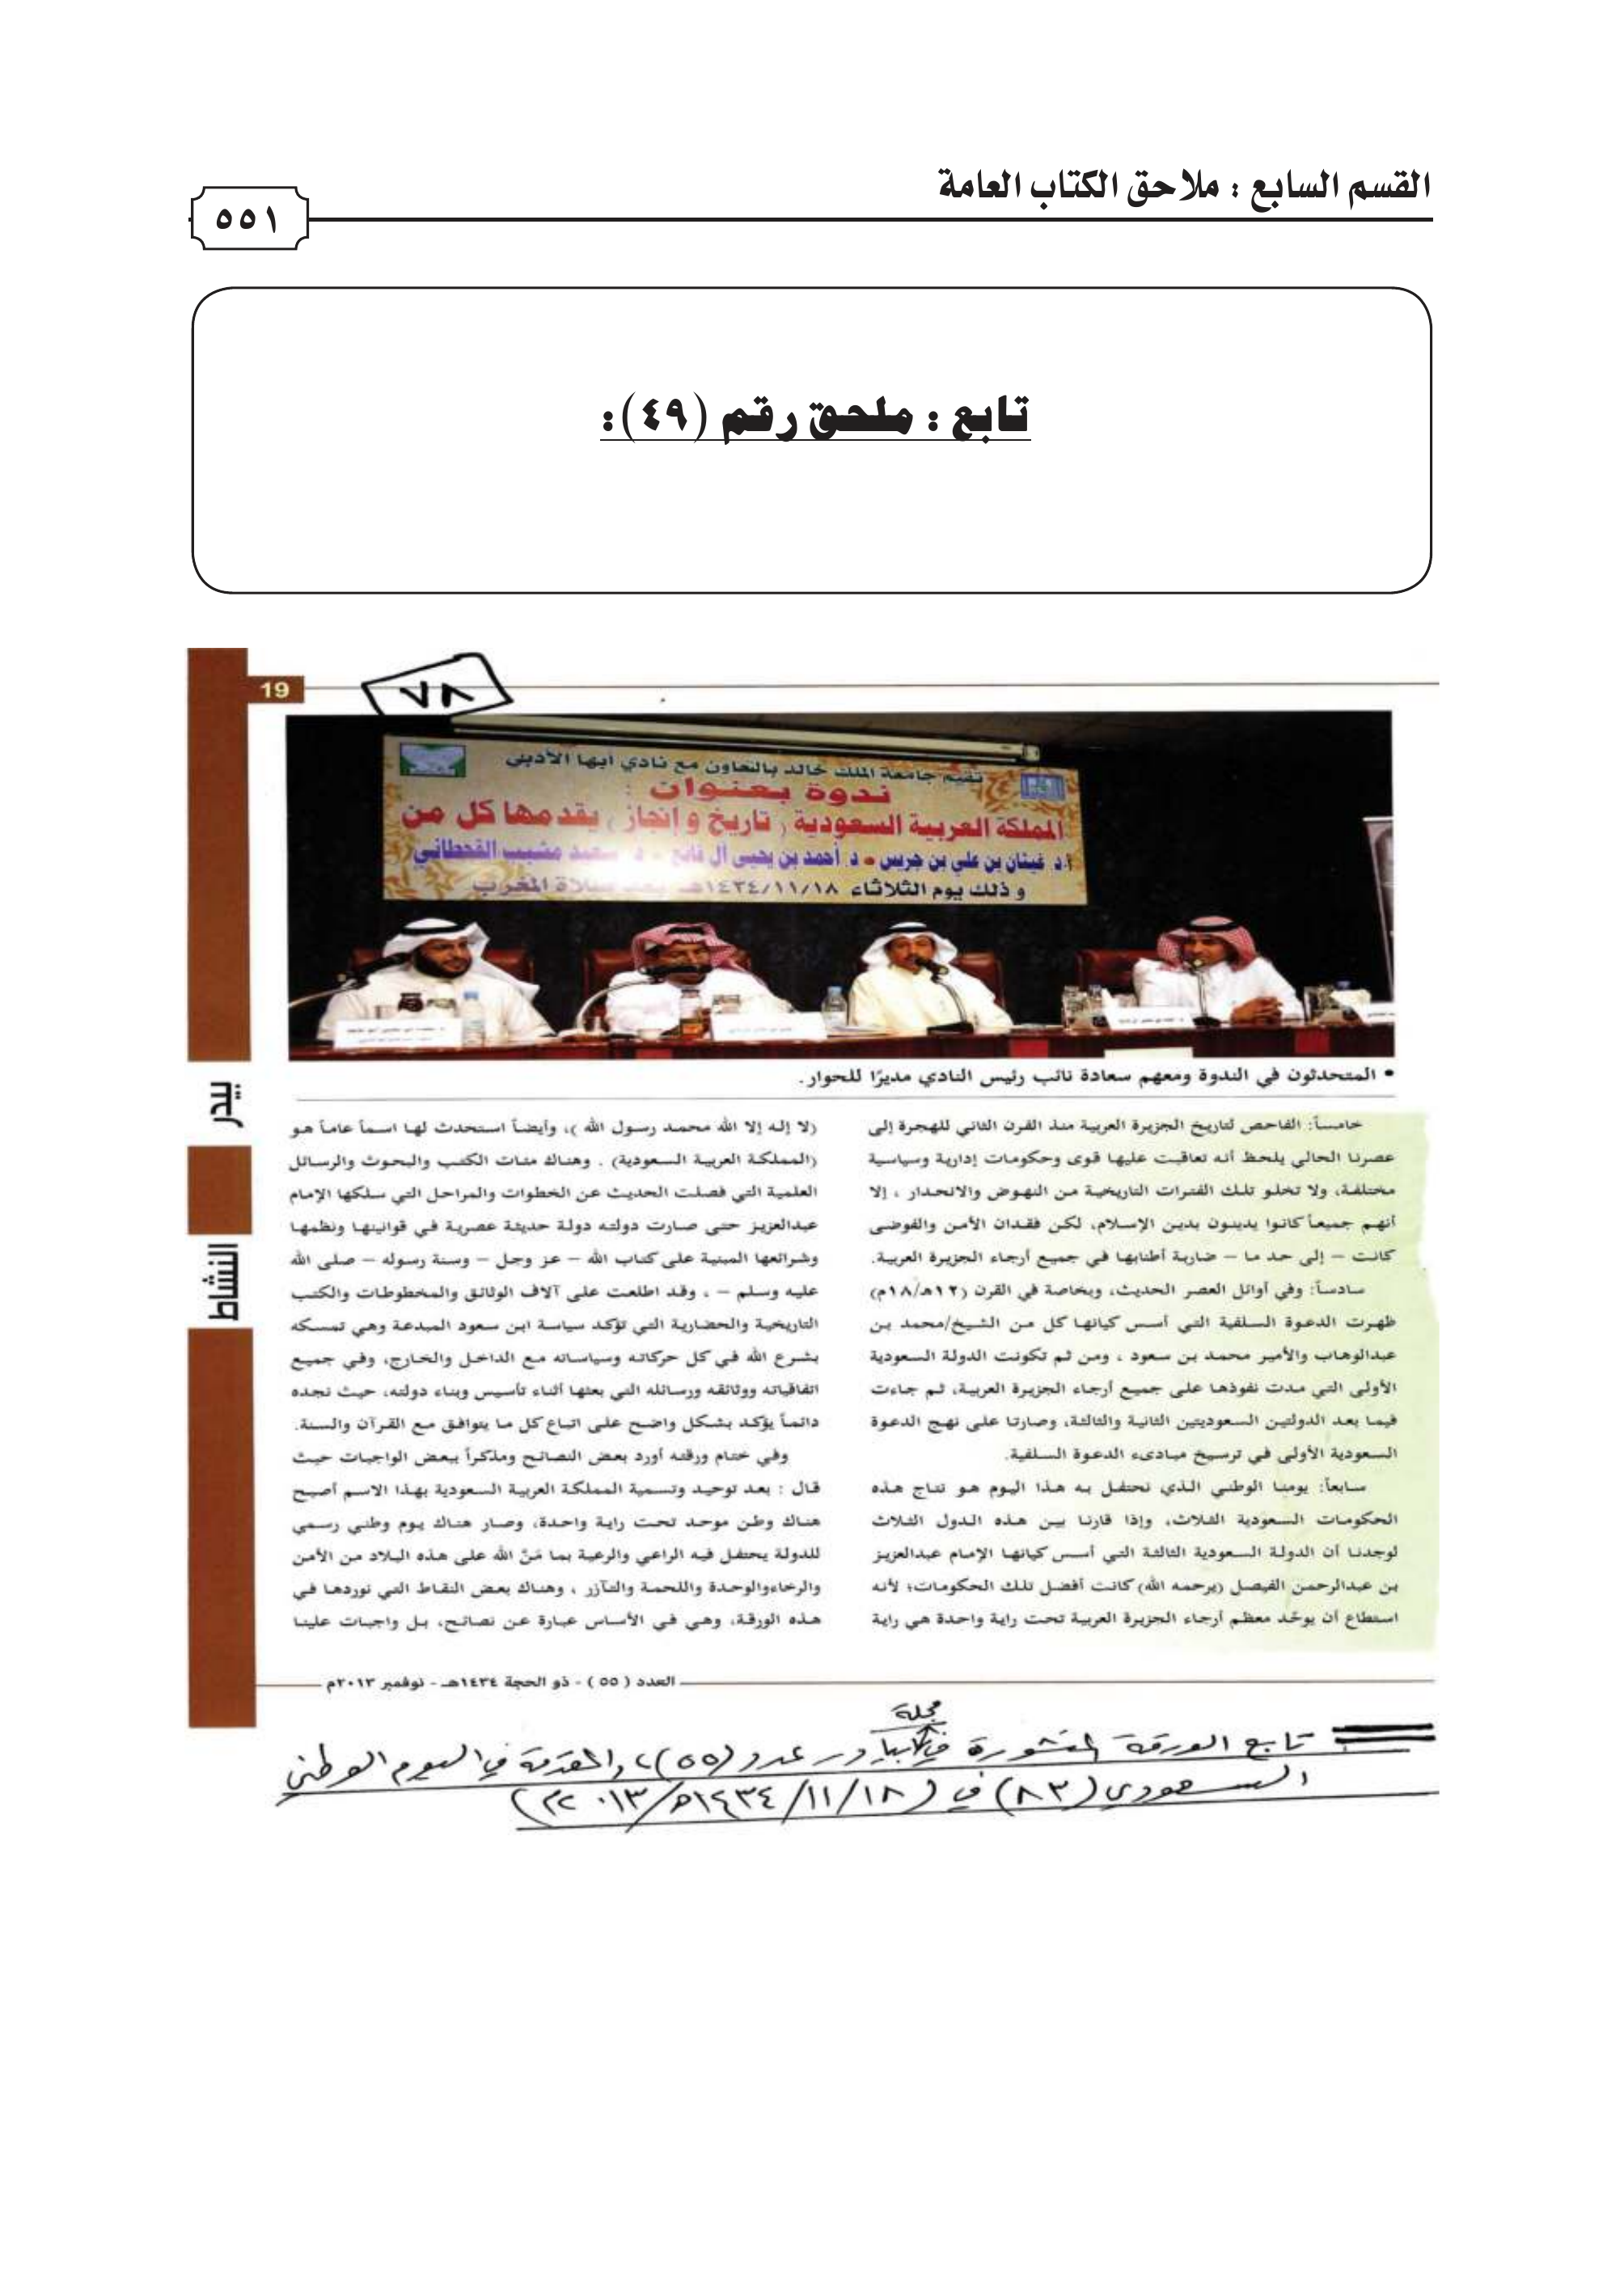 القسم السابع : ملاحق الكتاب العامة
٥٥١
تابع : ملحق رقم (٤٩):
19
٧٨
تقيم جامعة الملك خالد بالتعاون مع نادي أبها الأدبي
ندوة بعنوان :
المملكة العربية السعودية ( تاريخ و إنجاز ) يقدمها كل من
أ.د. غيثان بن علي بن جريس - د. أحمد بن يحيى آل فائع - د. سعيد مشبب القحطاني
و ذلك يوم الثلاثاء ١٤٣٤/١١/١٨هـ بعد صلاة المغرب
• المتحدثون في الندوة ومعهم سعادة نائب رئيس النادي مديرًا للحوار.
خامساً: الفاحص لتاريخ الجزيرة العربية منذ القرن الثاني للهجرة إلى
عصرنا الحالي يلحظ أنه تعاقبت عليها قوى وحكومات إدارية وسياسية
مختلفة، ولا تخلو تلك الفترات التاريخية من النهوض والانحدار ، إلا
أنهم جميعاً كانوا يدينون بدين الإسلام، لكن فقدان الأمن والفوضى
كانت – إلى حد ما – ضاربة أطنابها في جميع أرجاء الجزيرة العربية.
سادساً: وفي أوائل العصر الحديث، وبخاصة في القرن (١٢هـ/١٨م)
ظهرت الدعوة السلفية التي أسس كيانها كل من الشيخ/محمد بن
عبدالوهاب والأمير محمد بن سعود ، ومن ثم تكونت الدولة السعودية
الأولى التي مدت نفوذها على جميع أرجاء الجزيرة العربية، ثم جاءت
فيما بعد الدولتين السعوديتين الثانية والثالثة، وصارتا على نهج الدعوة
السعودية الأولى في ترسيخ مبادىء الدعوة السلفية.
سابعاً: يومنا الوطني الذي نحتفل به هذا اليوم هو نتاج هذه
الحكومات السعودية الثلاث، وإذا قارنا بين هذه الدول الثلاث
لوجدنا أن الدولة السعودية الثالثة التي أسس كيانها الإمام عبدالعزيز
بن عبدالرحمن الفيصل (يرحمه الله) كانت أفضل تلك الحكومات؛ لأنه
استطاع أن يوحّد معظم أرجاء الجزيرة العربية تحت راية واحدة هي راية
(لا إله إلا الله محمد رسول الله )، وأيضاً استحدث لها اسماً عاماً هو
(المملكة العربية السعودية) . وهناك مئات الكتب والبحوث والرسائل
العلمية التي فصلت الحديث عن الخطوات والمراحل التي سلكها الإمام
عبدالعزيز حتى صارت دولته دولة حديثة عصرية في قوانينها ونظمها
وشرائعها المبنية على كتاب الله – عز وجل – وسنة رسوله – صلى الله
عليه وسلم – ، وقد اطلعت على آلاف الوثائق والمخطوطات والكتب
التاريخية والحضارية التي تؤكد سياسة ابن سعود المبدعة وهي تمسكه
بشرع الله في كل حركاته وسياساته مع الداخل والخارج، وفي جميع
اتفاقياته ووثائقه ورسائله التي بعثها أثناء تأسيس وبناء دولته، حيث نجده
دائماً يؤكد بشكل واضح على اتباع كل ما يتوافق مع القرآن والسنة.
وفي ختام ورقته أورد بعض النصائح ومذكراً ببعض الواجبات حيث
قال : بعد توحيد وتسمية المملكة العربية السعودية بهذا الاسم أصبح
هناك وطن موحد تحت راية واحدة، وصار هناك يوم وطني رسمي
للدولة يحتفل فيه الراعي والرعية بما مَنَّ الله على هذه البلاد من الأمن
والرخاءوالوحدة واللحمة والتآزر ، وهناك بعض النقاط التي نوردها في
هذه الورقة، وهي في الأساس عبارة عن نصائح، بل واجبات علينا
بيدر
النشاط
العدد ( ٥٥ ) - ذو الحجة ١٤٣٤هـ - نوفمبر ٢٠١٣م
مجلة
تابع الورقة المنشورة في بيادر عدد (٥٥)، والمقدمة في اليوم الوطني
السعودي (٨٣) في (١٨/١١/١٤٣٤هـ/٢٠١٣م)